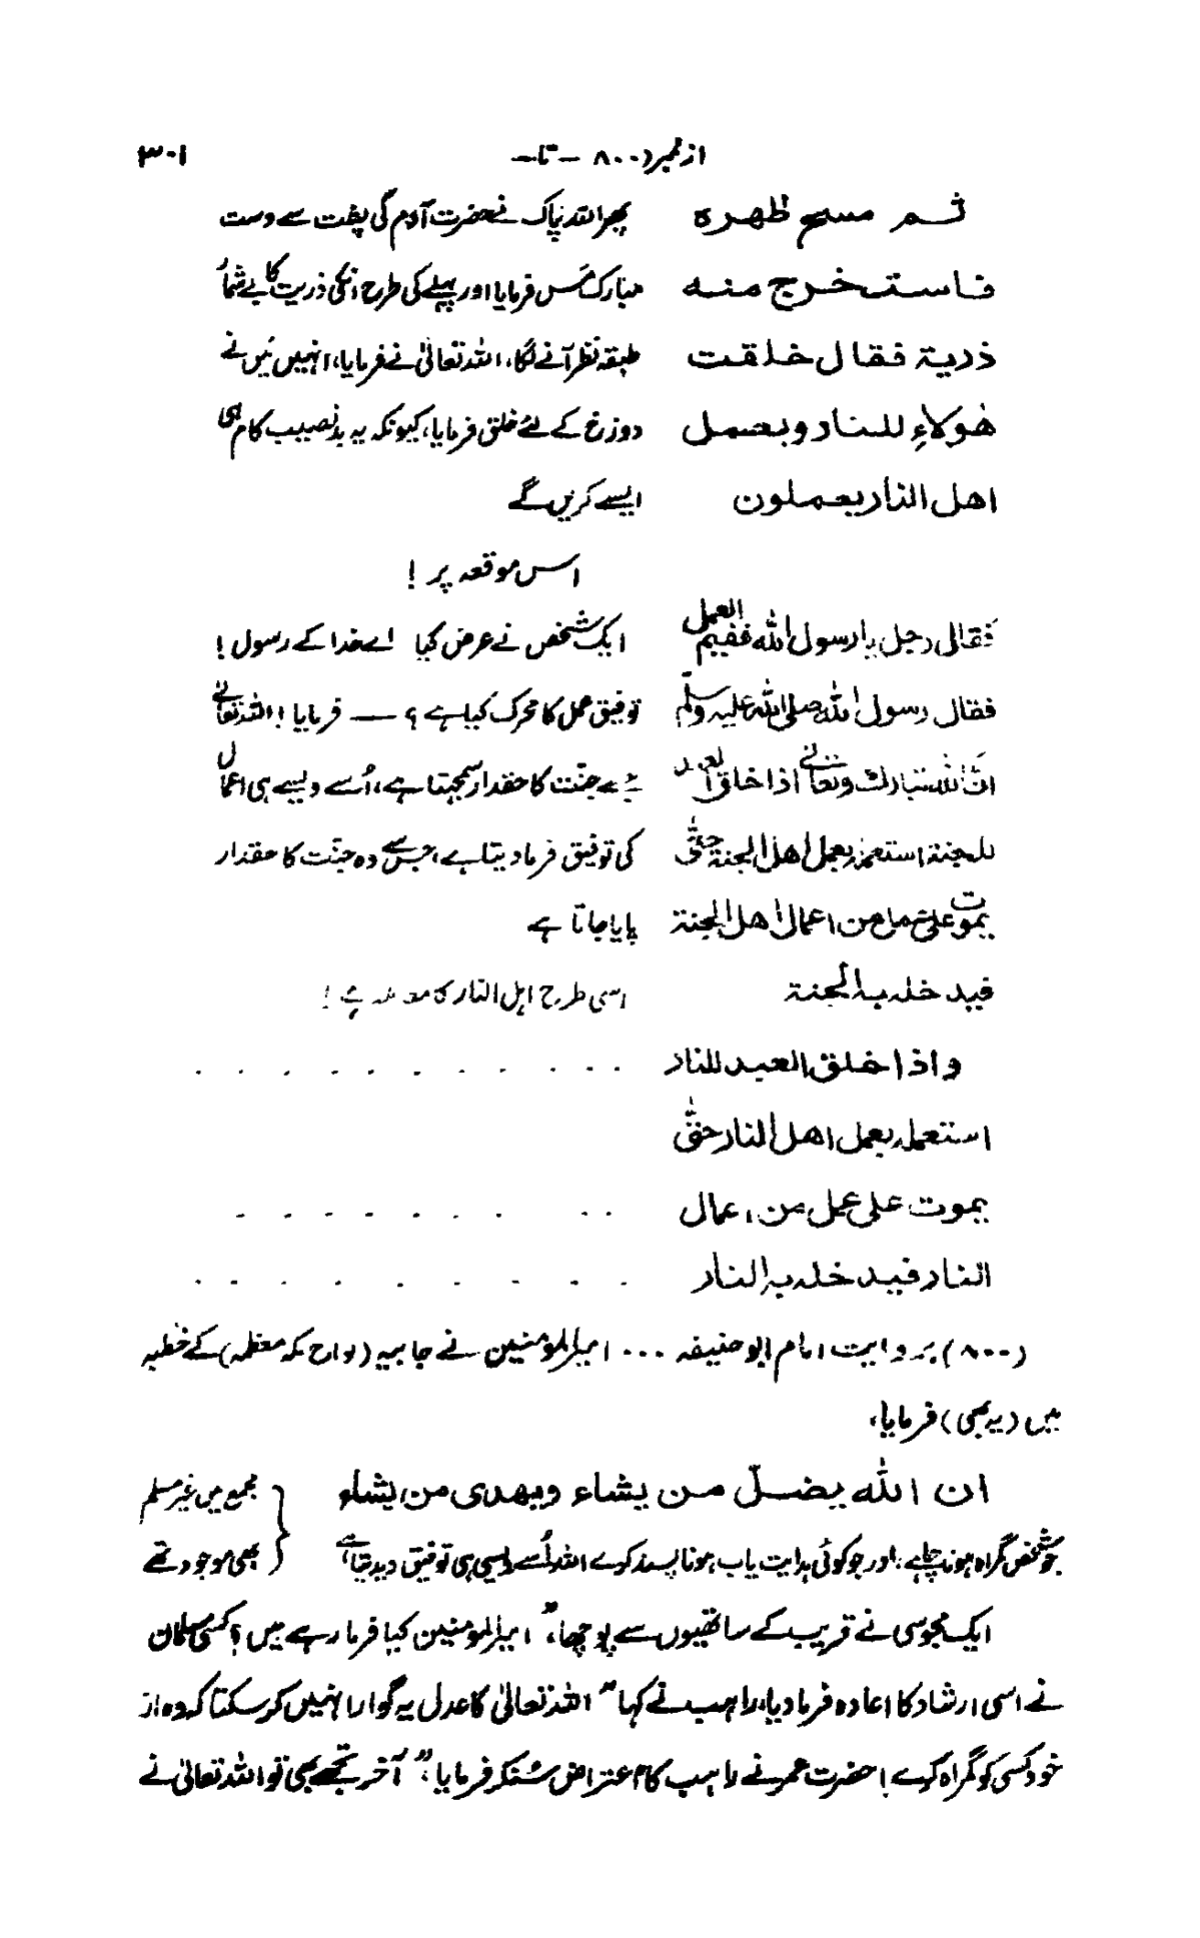 از نمبر (۸۰۰ — تا — ۳۰۱
ثم مسح ظهره پھر اللہ پاک نے حضرت آدم کی پشت سے دست
فاستخرج منه مبارک مَس فرمایا اور پہلے کی طرح انکی ذریت کا بے شمار
ذرية فقال خلقت طبقہ نظر آنے لگا، اللہ تعالیٰ نے فرمایا، انہیں مَیں نے
هٰولاءِ للنار وبعمل دوزخ کے لئے خلق فرمایا، کیونکہ یہ بدنصیب کام ہی
اهل النار يعملون ایسے کریں گے
اس موقعہ پر !
فقال رجل يا رسول الله ففيم العمل ایک شخص نے عرض کیا اے خدا کے رسول !
فقال رسول الله صلى الله عليه وسلّم توفیق عمل کا محرک کیا ہے ؟ — فرمایا ! اللہ تعالےٰ
انّ الله تبارك وتعالےٰ اذا خلق العبد جسے جنّت کا حقدار سمجھتا ہے، اُسے ویسے ہی اعمال
للجنة استعمله بعمل اهل الجنة حتّٰى کی توفیق فرما دیتا ہے، جس سے وہ جنّت کا حقدار
يموت على عمل من اعمال اهل الجنة پایا جاتا ہے
فيدخله به الجنة اسی طرح اہل النار کا معاملہ ہے !
واذا خلق العبد للنار . . . . . . . . . . .
استعمله بعمل اهل النار حتّٰى
يموت على عمل من اعمال . . . . . . . . .
النار فيدخله به النار . . . . . . . . .
(۸۰۰) بروایت امام ابو حنیفہ ... امیرالمؤمنین نے جابیہ (نواح مکہ معظمہ) کے خطبہ
میں (یہ بھی) فرمایا،
ان الله يضلّ من يشاء ويهدى من يشاء } مجمع میں غیر مسلم
جو شخص گمراہ ہونا چاہے، اور جو کوئی ہدایت یاب ہونا پسند کرے اللہ اُسے ویسی ہی توفیق دیدیتا ہے } بھی موجود تھے
ایک مجوسی نے قریب کے ساتھیوں سے پوچھا، "امیرالمومنین کیا فرما رہے ہیں ؟ کسی مسلمان
نے اسی ارشاد کا اعادہ فرما دیا، راہب نے کہا "اللہ تعالیٰ کا عدل یہ گوارا نہیں کر سکتا کہ وہ از
خود کسی کو گمراہ کرے ! حضرت عمر نے راہب کا اعتراض سُنکر فرمایا، "آخر تجھے بھی تو اللہ تعالیٰ نے